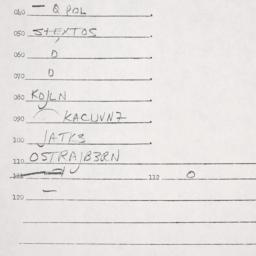 060 — QPOL
050 S+EXTOS
060 0
070 0
080 KOJLN
090 KACUVN7
100 JATK3
110 OSTRAJB3RN
110 0
120 —